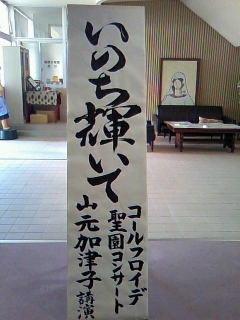 いのち輝いて
コールフロイデ
聖園コンサート
山元加津子 講演